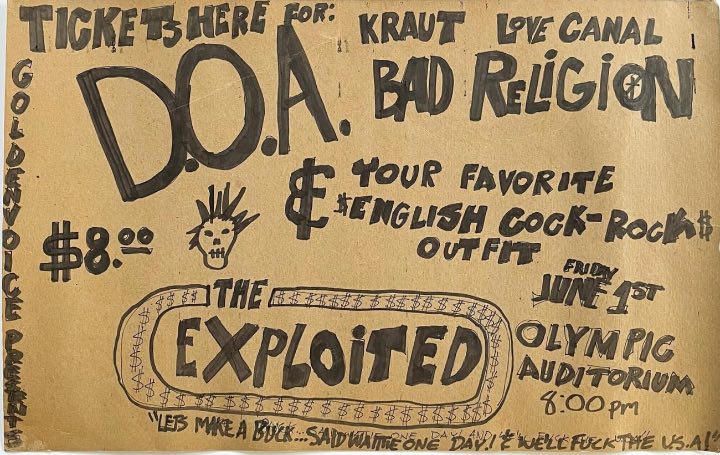 TICKETS HERE FOR: KRAUT LOVE CANAL
D.O.A. BAD RELIGION
GOLDENVOICE PRESENTS
$8.00
& YOUR FAVORITE
$ENGLISH COCK-ROCK$
OUTFIT
FRIDAY
JUNE 1ST
THE
EXPLOITED
OLYMPIC
AUDITORIUM
8:00 PM
"LETS MAKE A BUCK... SAID WATTIE ONE DAY! & WE'LL FUCK THE U.S.A!"